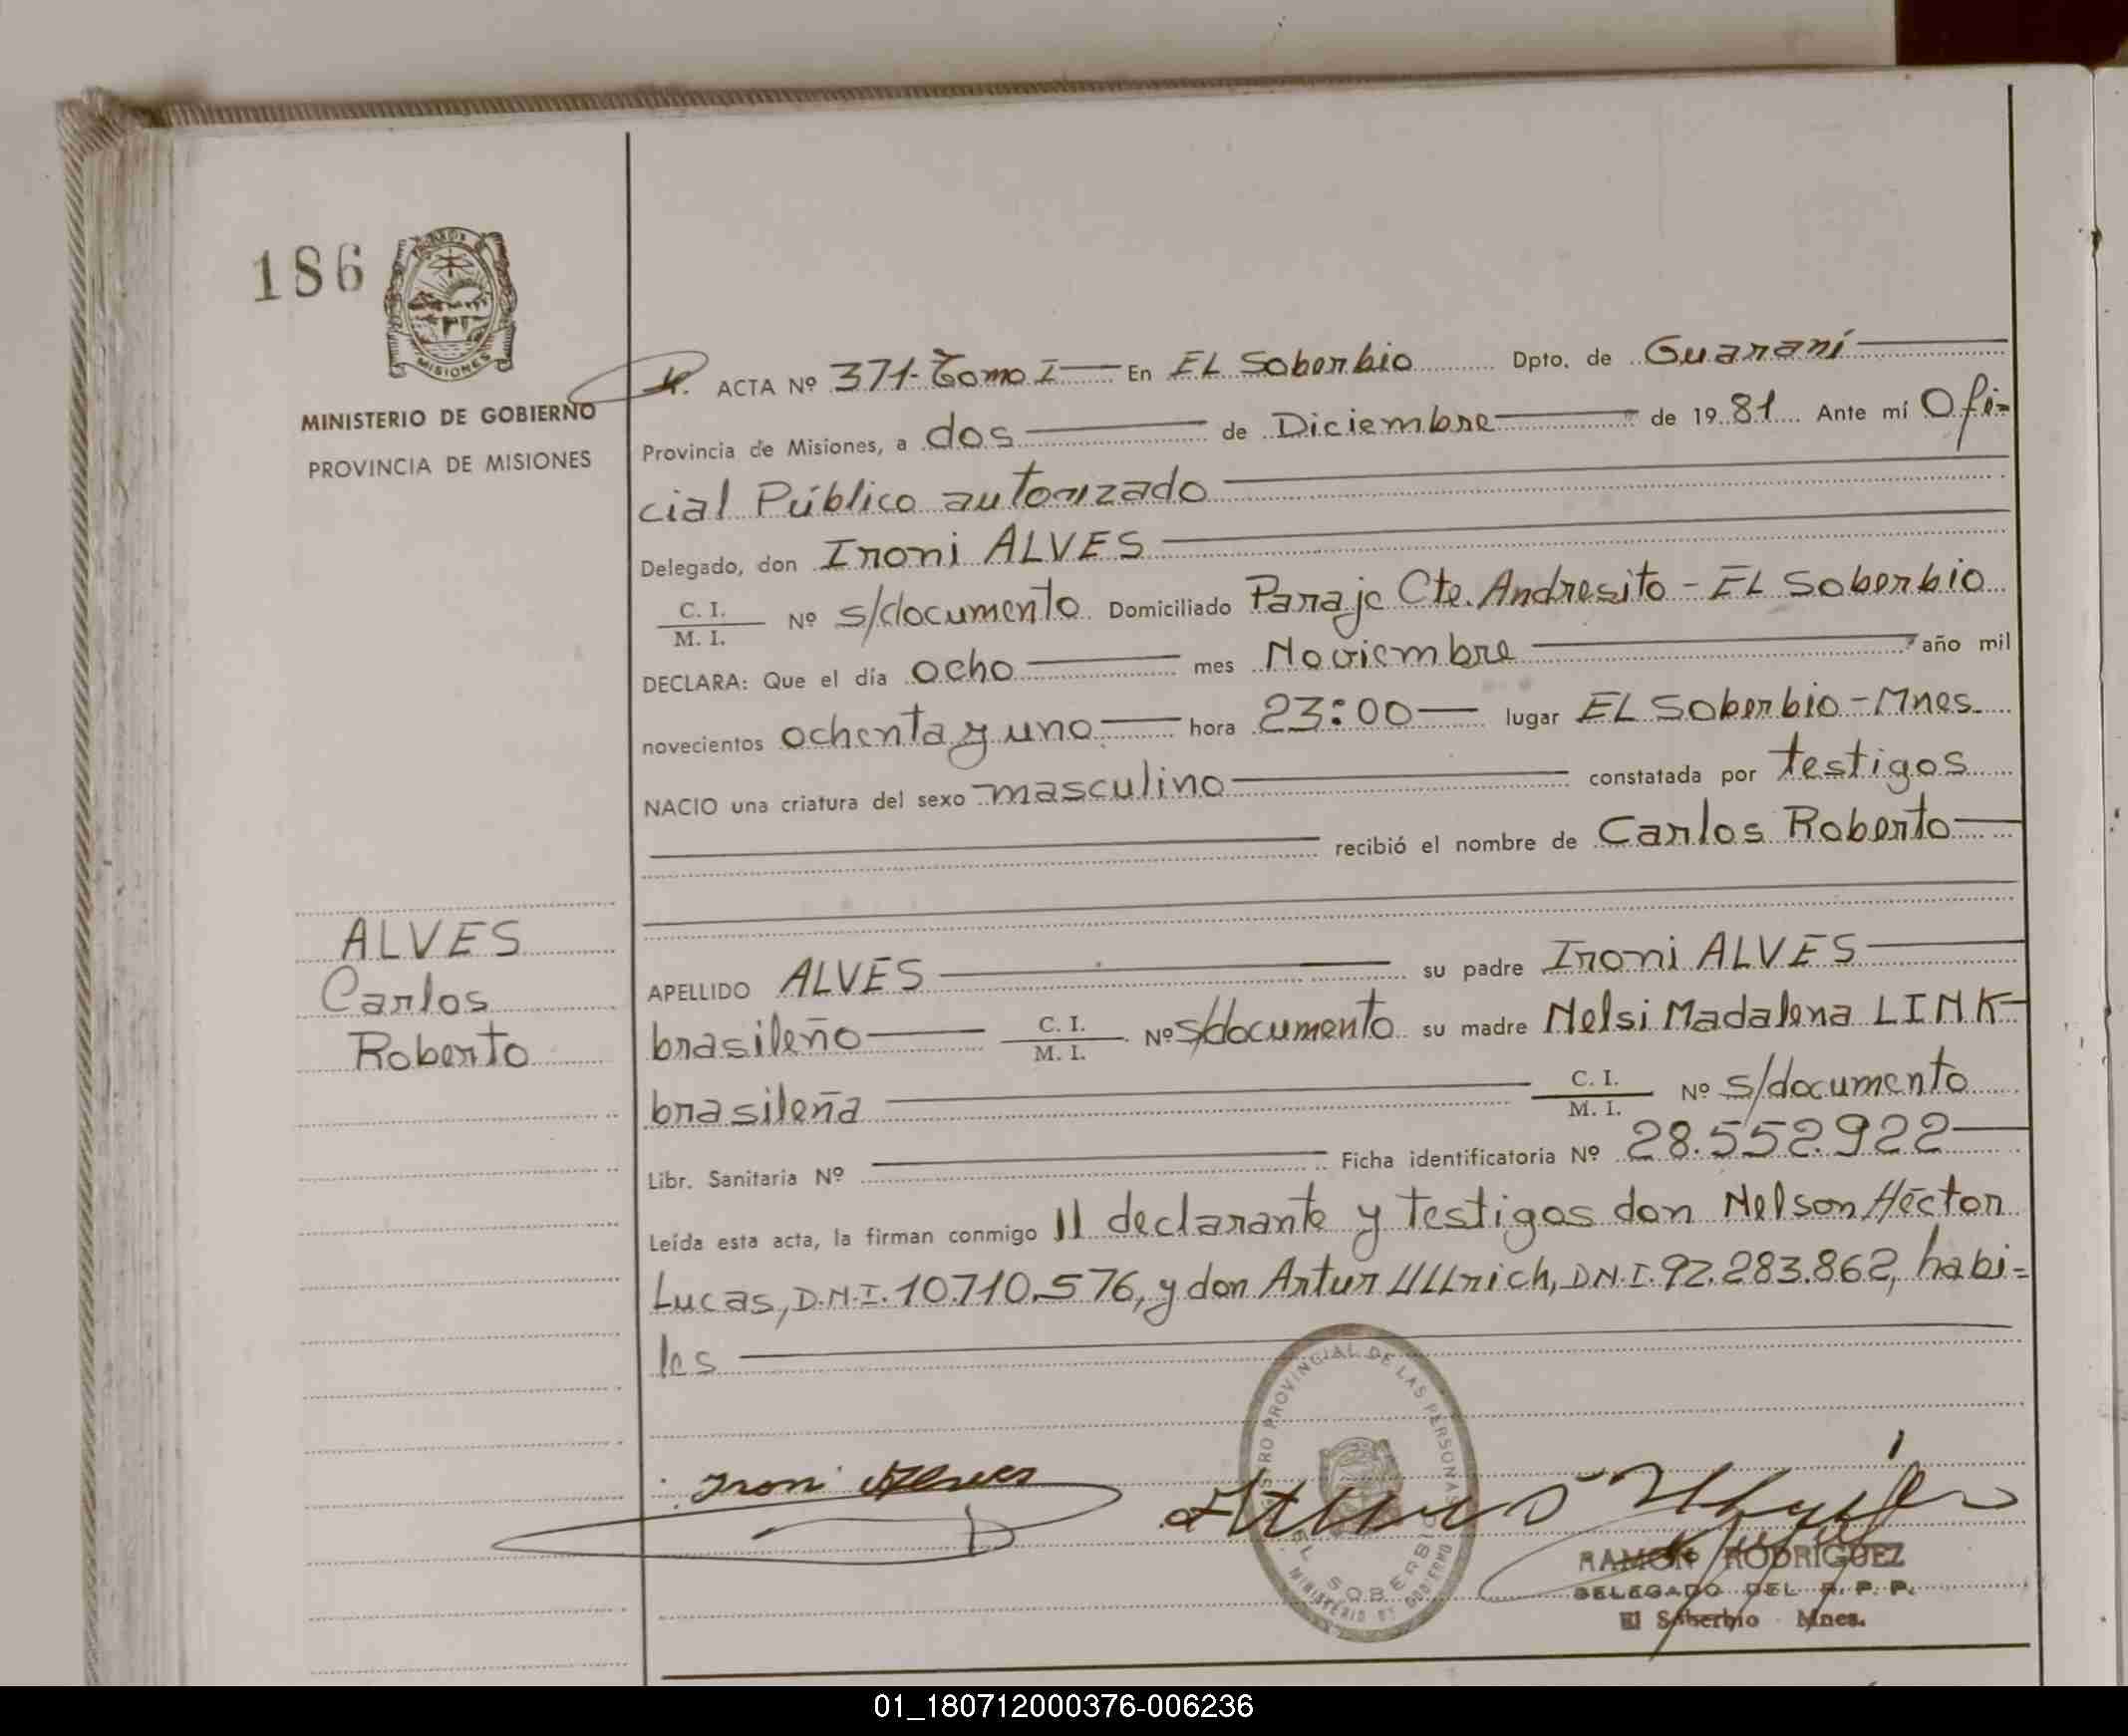 186
MISIONES
MINISTERIO DE GOBIERNO
PROVINCIA DE MISIONES
ACTA Nº 371-Tomo I En EL Soberbio Dpto. de Guaraní
Provincia de Misiones, a dos de Diciembre de 1981 Ante mí Ofi-
cial Público autorizado
Delegado, don Ironi ALVES
C. I.
M. I. Nº s/documento Domiciliado Paraje Cte. Andresito - EL Soberbio
DECLARA: Que el día ocho mes Noviembre año mil
novecientos ochenta y uno hora 23:00 lugar EL Soberbio-Mnes.
NACIO una criatura del sexo masculino constatada por testigos
recibió el nombre de Carlos Roberto
ALVES
Carlos
Roberto
APELLIDO ALVES su padre Ironi ALVES
brasileño C. I. M. I. Nº s/documento su madre Nelsi Madalena LINK
brasileña C. I. M. I. Nº s/documento
Libr. Sanitaria Nº Ficha identificatoria Nº 28.552.922
Leída esta acta, la firman conmigo El declarante y testigos don Nelson Héctor
Lucas, D.N.I. 10.710.576, y don Artur Ullrich, D.N.I. 92.283.862, habi=
les
Ironi Alves
REGISTRO PROVINCIAL DE LAS PERSONAS
EL SOBERBIO
MINISTERIO DE GOBIERNO
RAMON RODRIGUEZ
DELEGADO DEL R. P. P.
El Soberbio Mnes.
01_180712000376-006236